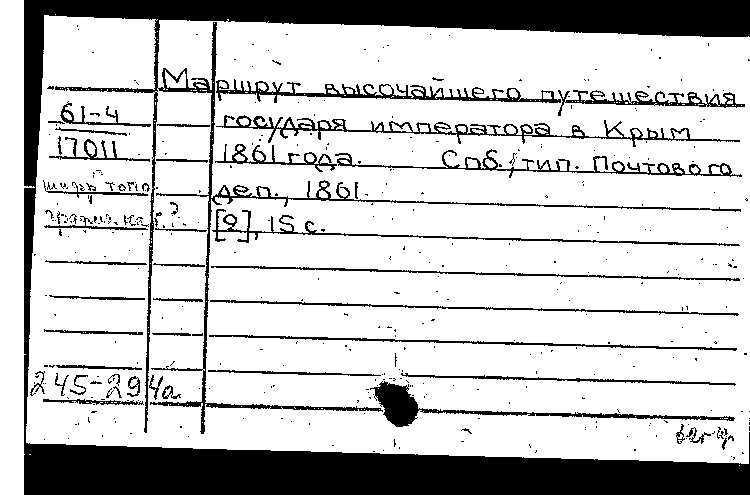 Маршрут высочайшего путешествия
61-4 государя императора в Крым
17011 1861 года. Спб., тип. Почтового
шифр топо- деп., 1861.
[2], 15 с.
245-294а